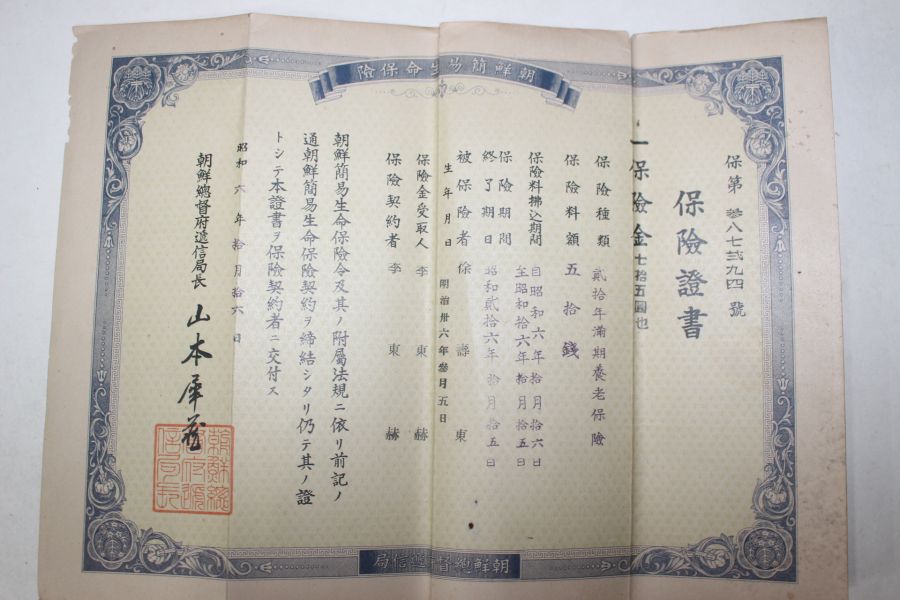 朝鮮簡易生命保險
保第參八七貳九四號
保險證書
一保險金七拾五圓也
保險種類 貳拾年滿期養老保險
保險料額 五拾錢
保險料拂込期間 自昭和六年拾月拾六日
至昭和拾六年拾月拾五日
保險期間
終了期日 昭和貳拾六年拾月拾五日
被保險者 徐壽東
生年月日 明治卅六年參月五日
保險金受取人 李東赫
保險契約者 李東赫
朝鮮簡易生命保險令及其ノ附屬法規ニ依リ前記ノ
通朝鮮簡易生命保險契約ヲ締結シタリ仍テ其ノ證
トシテ本證書ヲ保險契約者ニ交付ス
昭和六年拾月拾六日
朝鮮總督府遞信局長 山本犀藏
朝鮮總督府遞信局